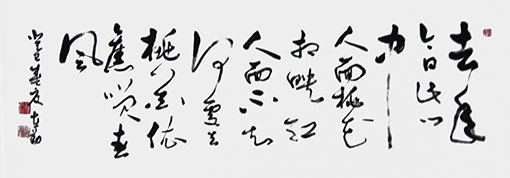 去年
今日此门
中
人面桃花
相映红
人面不知
何處去
桃花依
舊笑春
風